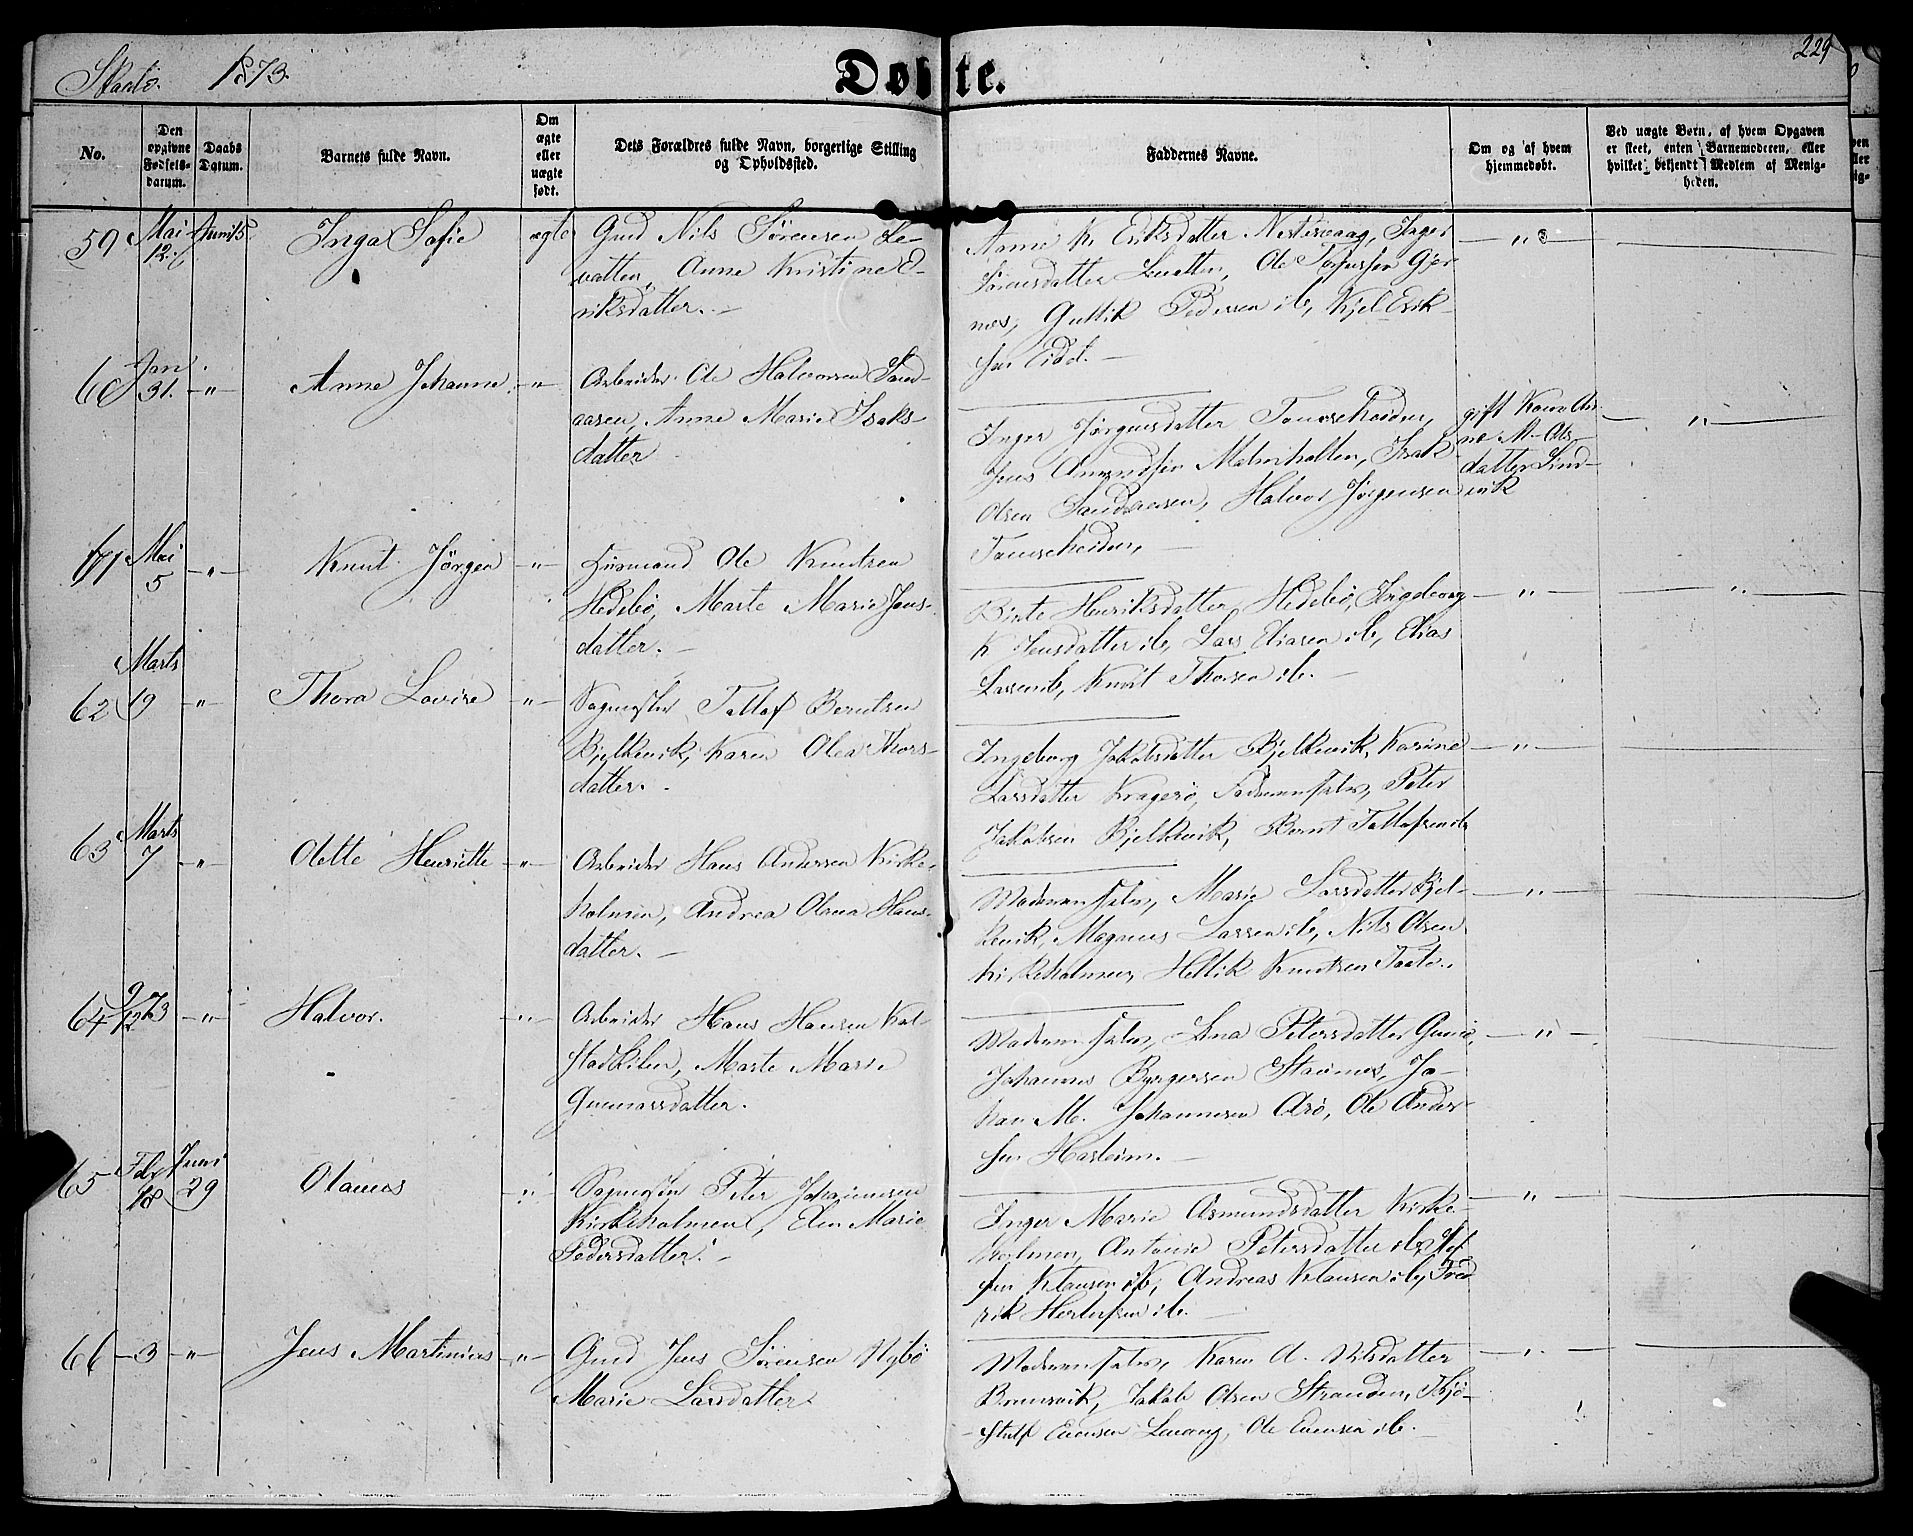 Skaatö. 1873.
Døbte.
229
No.
Den opgivne Fødsels-datum.
Daabs Datum.
Barnets fulde Navn.
Om ægte eller uægte født.
Dets Forældres fulde Navn, borgerlige Stilling og Opholdssted.
Faddernes Navne.
Om og af hvem hjemmedøbt.
Ved uægte Børn, af hvem Opgaven er skeet, enten Barnemoderen, eller hvilket bekjendt Medlem af Menigheden.
59 Mai 12. Juni 15 Inga Sofie ægte Gmd Nils Sörensen Le-
vatten, Anne Kristine E-
riksdatter. -
Anne K. Eriksdatter Vestervaag, Inger - " -
Sörensdatter Levatten, Ole
nes, Gullik Pedersen ib, Kjel Erik-
sen Eidet. -
60 Jan. 31. - " - Anne Johanne - " - Arbeider Ole Halvorsen Sand-
aasen, Anne Marie Isaks-
datter
Inger Jörgensdatter
Jens Amundsen Malmhalten, Isak
Olsen Sandaasen, Halvor Jörgensen
gift Kone An-
ne M. Ols-
datter Lind-
vik
- " -
61 Mai 5 - " - Knut Jörgen - " - Husmand Ole Knutsen
Hedebö, Marte Marie Jens-
datter. -
Birte Henriksdatter Hedebö, Ingeborg - " - "
K Jensdatter ib, Lars Eliasen ib, Elias
Larsen ib, Knut Thorsen ib. -
62 Marts 19 - " - Thora Lovise - " - Sagmester Tallaf Berntsen
Bjelkevik, Karen Olea Thors-
datter. -
Ingeborg Jakobsdatter Bjelkevik, Karine - " -
Larsdatter Kragerö, Peter
Jakobsen Bjelkevik, Bernt Tallafsen ib
63 Marts 7 - " - Olette Henriette - " - Arbeider Hans Andersen Kirke-
holmen, Andrea Olena Hans-
datter. -
Marie Larsdatter Bjel- - " -
kevik, Magnus Larsen ib, Nils Olsen
Kirkeholmen, Hellik Knutsen
64 9/12 73 - " - Halvor. - " - Arbeider Hans Hansen Kal-
stadkilen, Marte Marie
Gunnarsdatter.
Lina Petersdatter - " -
Johannes Byrgersen Stavnes, Jo-
han M. Johannesen Arö, Ole Ander-
sen
65 Febr 18 Juni 29 Olaves - " - Sagmester Peter Johannesen
Kirkeholmen, Elen Marie
Pedersdatter. -
Inger Marie Asmundsdatter Kirke- - " -
holmen, Antonie Petersdatter ib, Stef-
fen Klausen ib, Andreas Klausen ib, Fred-
rik Herlofsen ib. -
66 - 3 - " - Jens Martinius - " - Gmd Jens Sörensen Nybö
Marie Larsdatter.
Karen A. Nilsdatter - " -
Jakob Olsen Stranden, Kjö-
stulf Evensen Levang, Ole Evensen ib. -